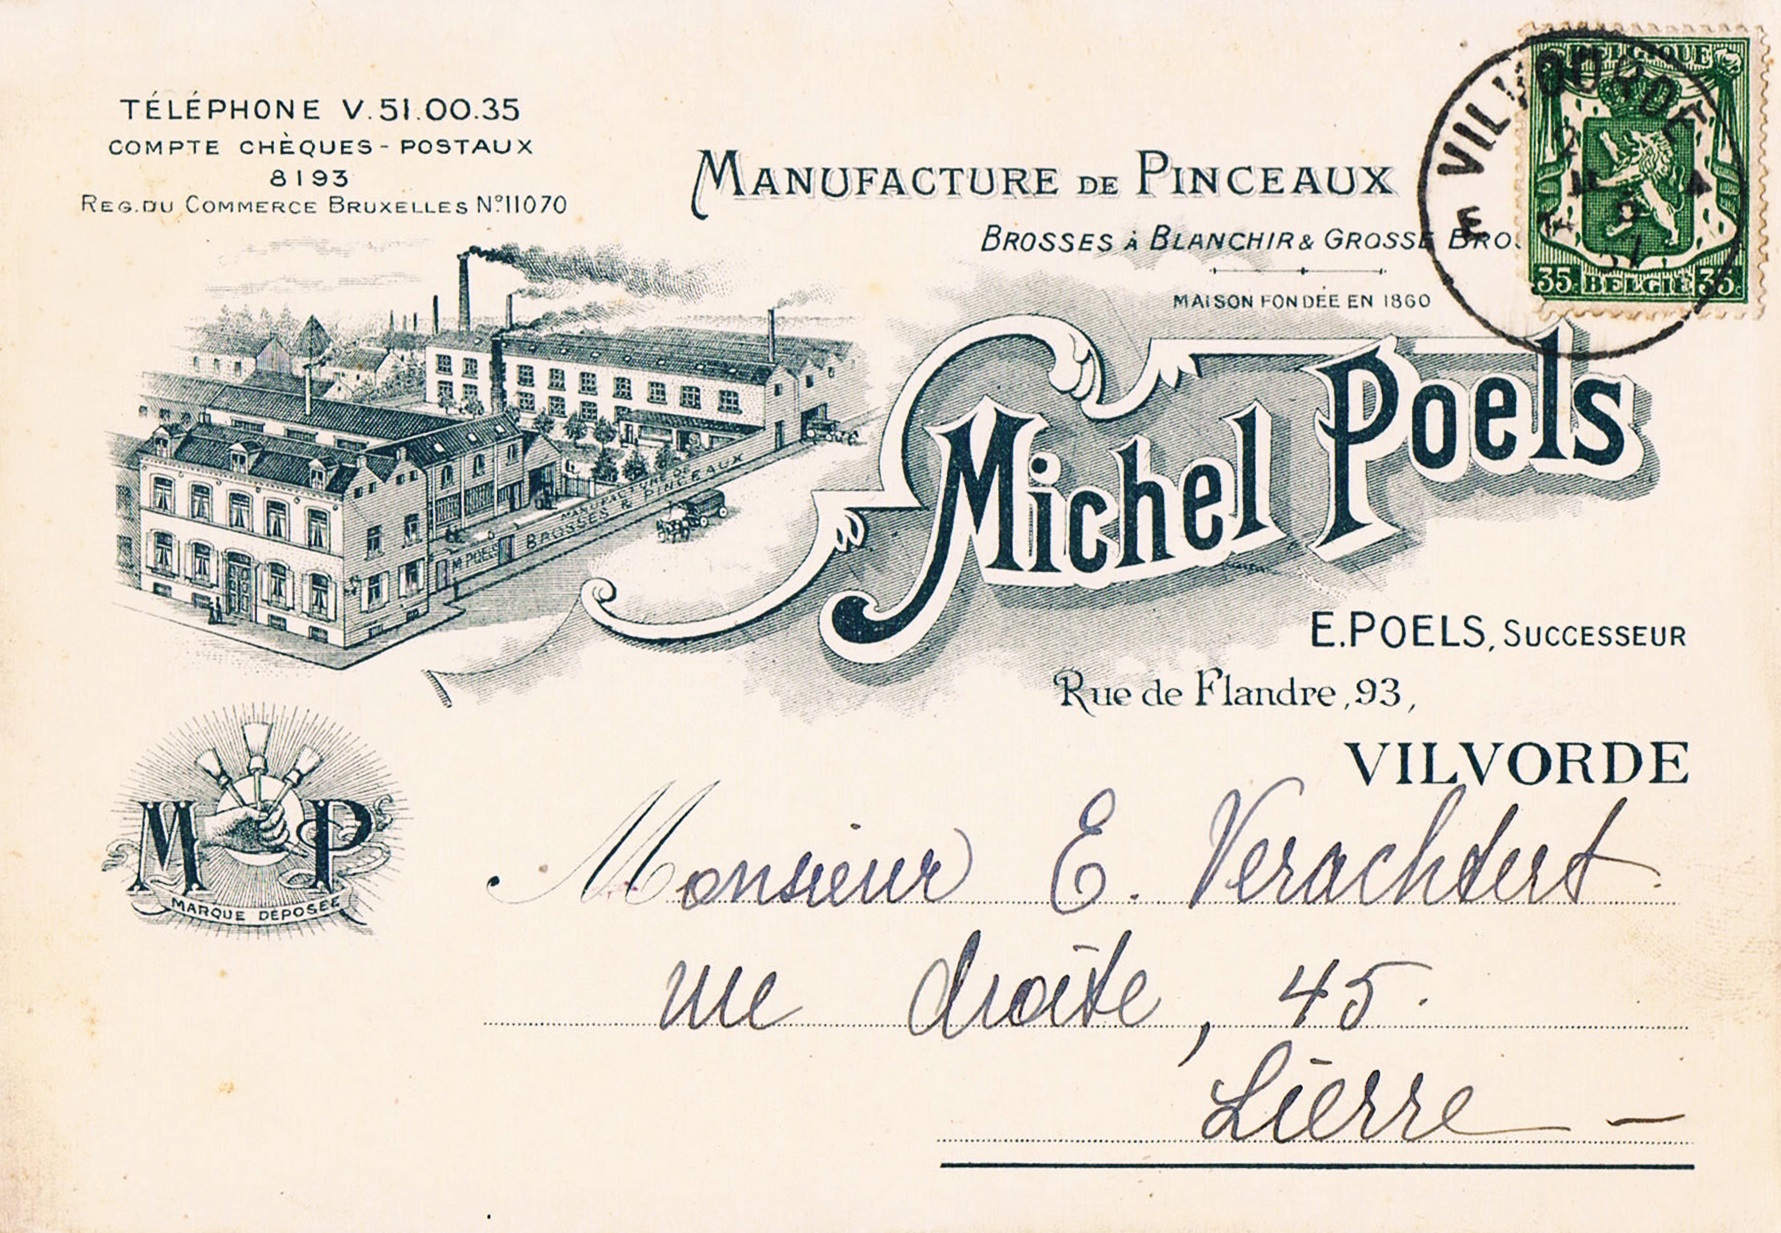 TÉLÉPHONE V.51.00.35
COMPTE CHÈQUES-POSTAUX
8193
REG.DU COMMERCE BRUXELLES Nº11070
MANUFACTURE DE PINCEAUX
BROSSES À BLANCHIR & GROSSE BROS
MAISON FONDÉE EN 1860
Michel Poels
E.POELS, SUCCESSEUR
Rue de Flandre, 93,
VILVORDE
BELGIQUE
35 BELGIË 35
VILVOORDE
MANUFACTURE DE
BROSSES & PINCEAUX
M. POELS
M P
MARQUE DÉPOSÉE
Monsieur E. Verachtert.
rue droite, 45.
Lierre —